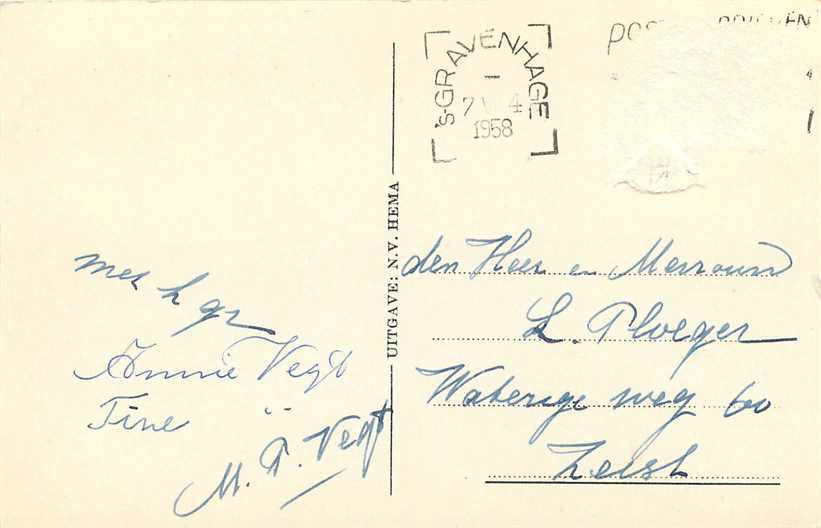 's-GRAVENHAGE
7 4
1958
met h gr
Annie Vegt
Tine "
M. P. Vegt
UITGAVE: N.V. HEMA
den Heer en Mevrouw
L. Ploeger
Waterige weg 60
Zeist